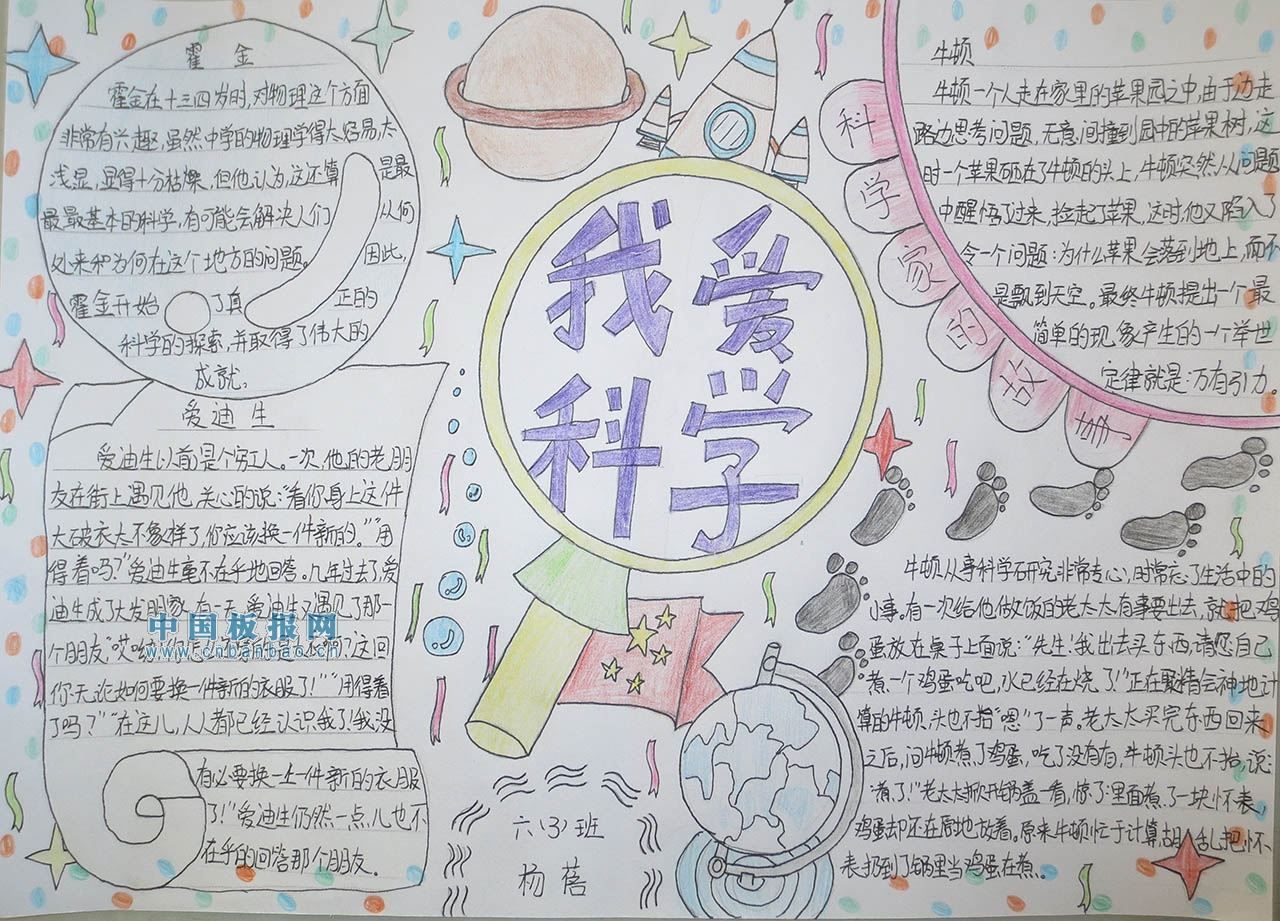 霍金
霍金在十三四岁时,对物理这个方面
非常有兴趣,虽然中学的物理学得太容易,太
浅显,显得十分枯燥,但他认为,这还算是最
最最基本的科学,有可能会解决人们从何
处来和为何在这个地方的问题。因此,
霍金开始了真正的
科学的探索,并取得了伟大的
成就。
爱迪生
爱迪生以前是个穷工人。一次,他的老朋
友在街上遇见他,关心的说:“看你身上这件
大破衣太不象样了,你应该换一件新的。”“用
得着吗?”爱迪生毫不在乎地回答。几年过去了,爱
迪生成了大发明家。有一天,爱迪生又遇见了那一
个朋友,“哎呦
吗?这回
你无论如何要换一件新的衣服了!”“用得着
了吗?”“在这儿,人人都已经认识我了!我没
有必要换一上件新的衣服
了!”爱迪生仍然一点儿也不
在乎的回答那个朋友。
中国板报网
www.cnbanbao.cn
我爱
科学
六(3)班
杨蓓
科学家的故事
牛顿
牛顿一个人走在家里的苹果园之中,由于边走
路边思考问题,无意间撞到园中的苹果树,这
时一个苹果砸在了牛顿的头上,牛顿突然从问题
中醒悟了过来,捡起了苹果,这时,他又陷入了
令一个问题:为什么苹果会落到地上,而不
是飘到天空。最终牛顿提出一个最
简单的现象产生的一个举世
定律就是:万有引力。
牛顿从事科学研究非常专心,时常忘了生活中的
小事。有一次给他做饭的老太太有事要出去,就把鸡
蛋放在桌子上面说:“先生!我出去买东西,请您自己
煮一个鸡蛋吃吧,水已经在烧了!”正在聚精会神地计
算的牛顿,头也不抬“嗯”了一声。老太太买完东西回来
之后,问牛顿煮了鸡蛋,吃了没有,牛顿头也不抬,说:
“煮了!”老太太掀开锅盖一看,惊了:里面煮了一块怀表,
鸡蛋却还在原地放着。原来牛顿忙于计算,胡乱把怀
表扔到了锅里当鸡蛋在煮。